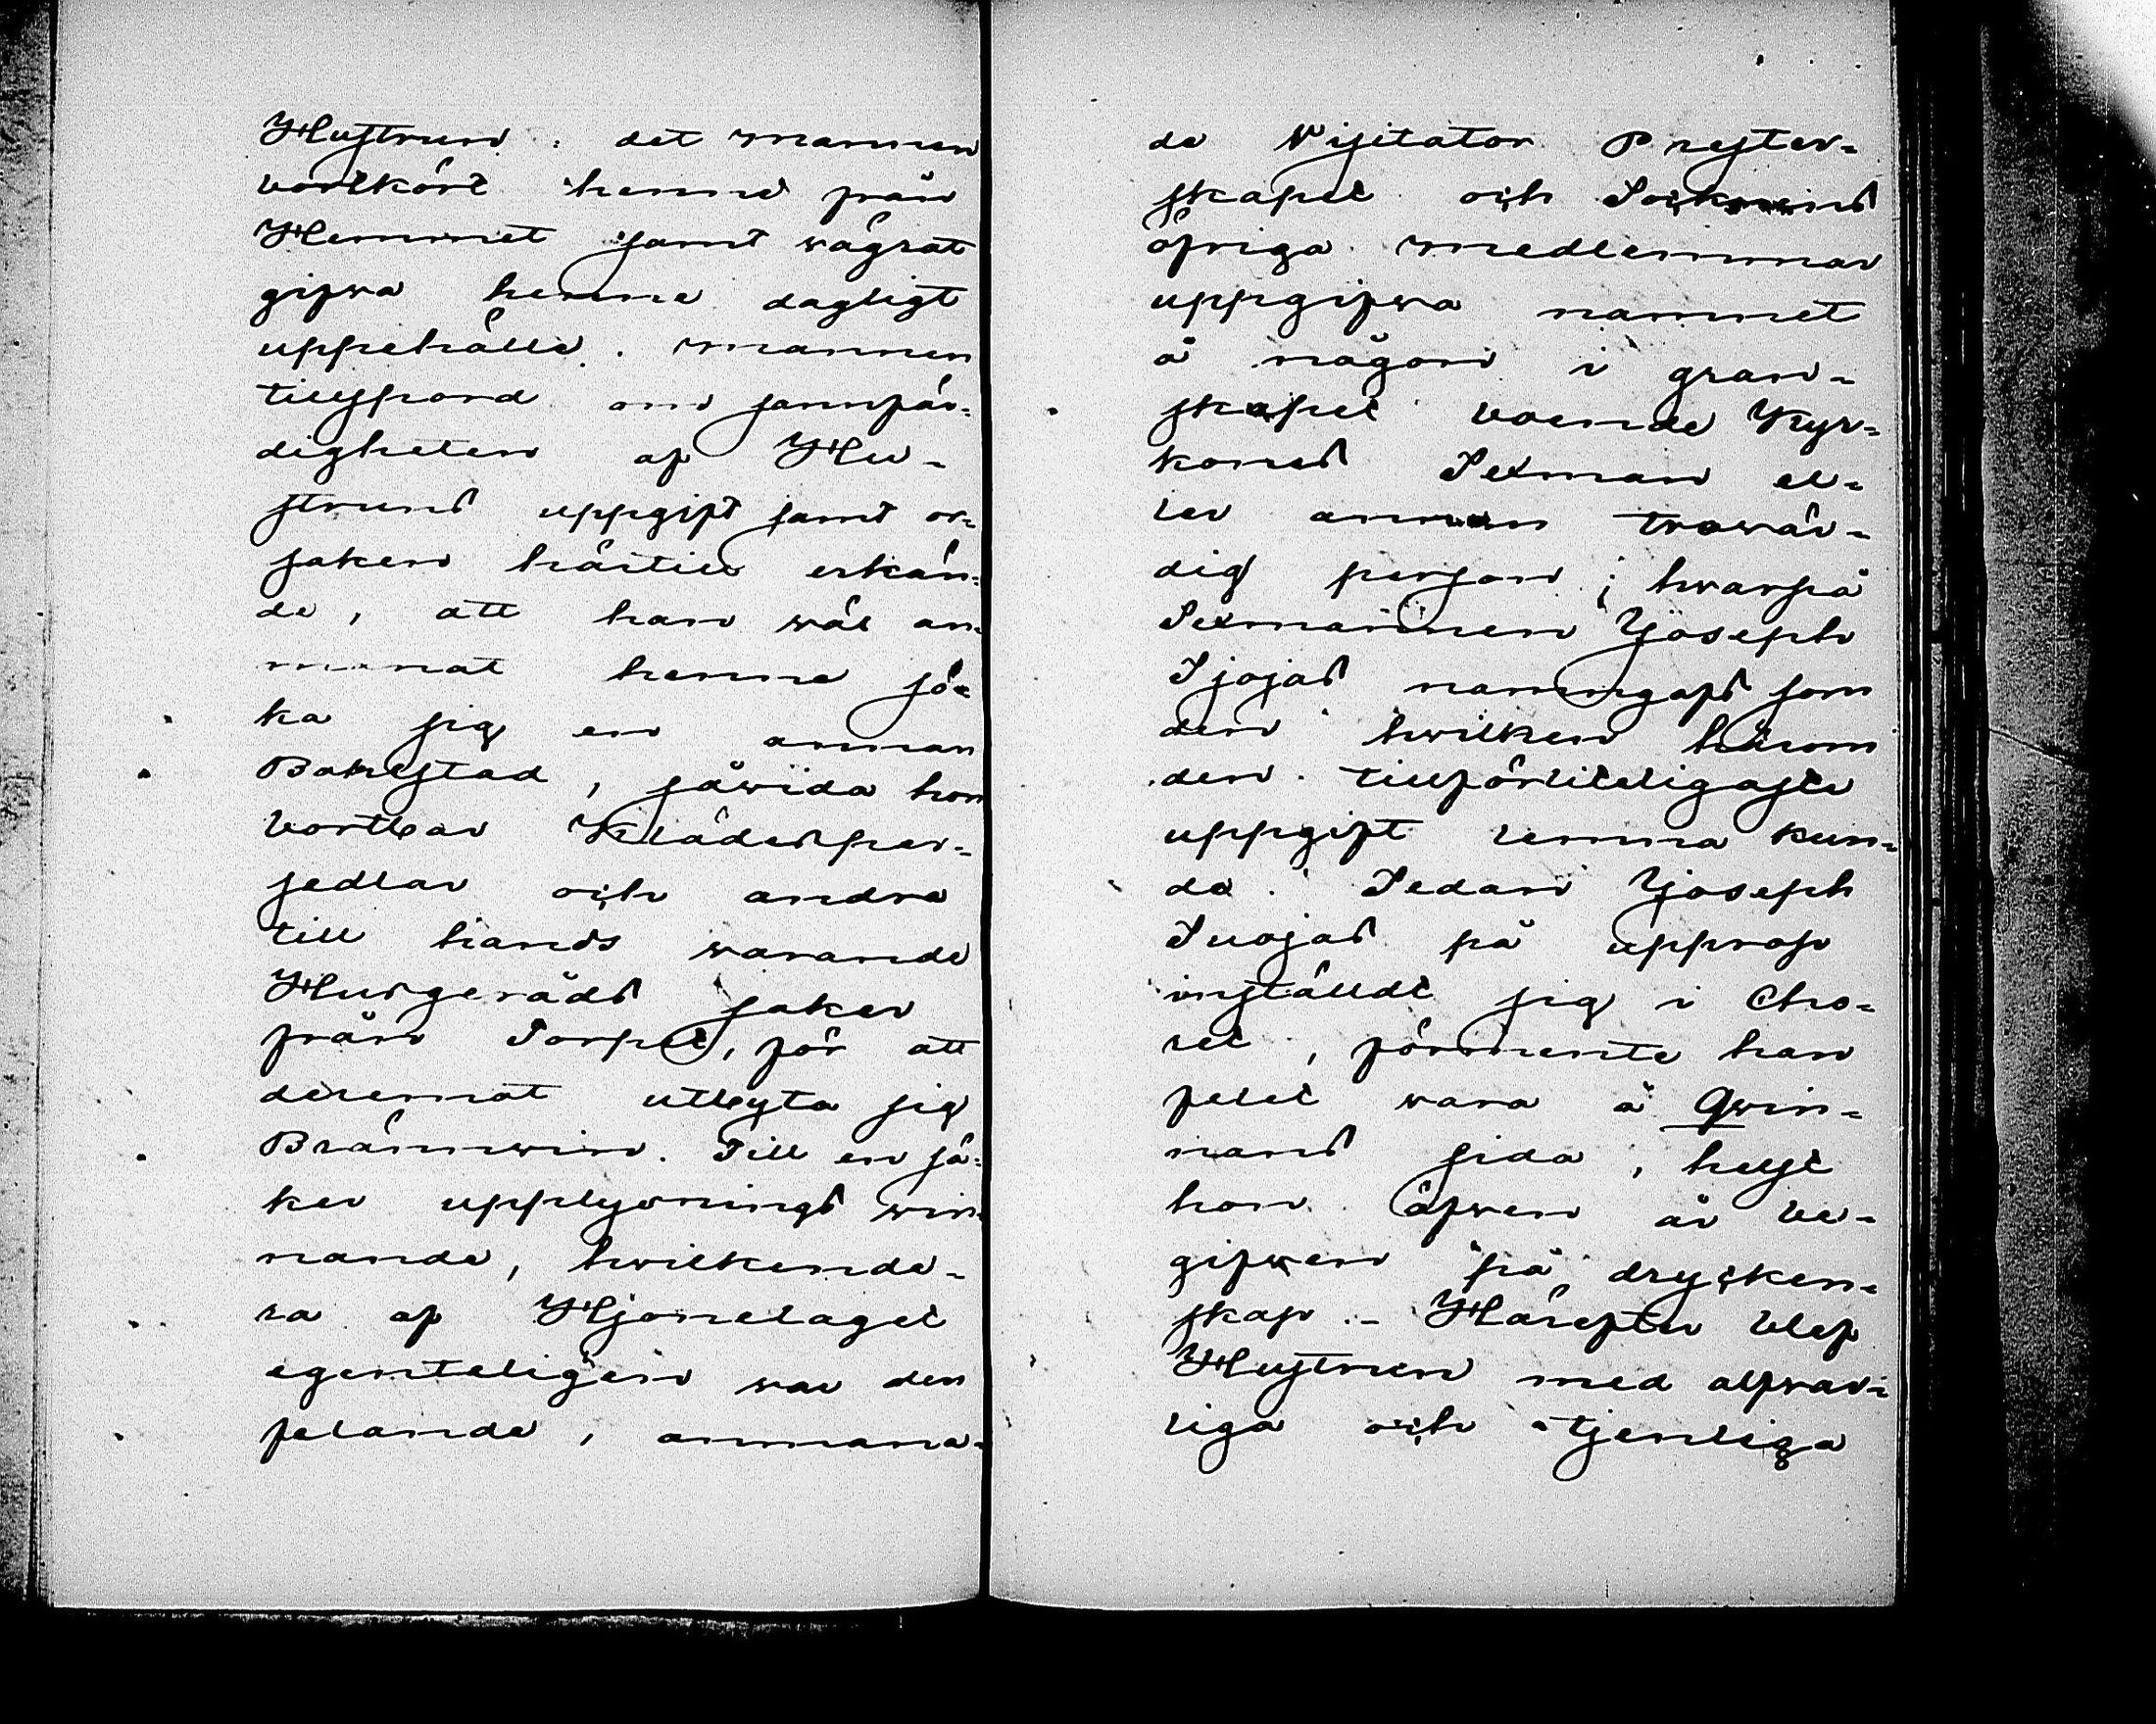 Hustrun: det mannen
bortkört henne från
Hemmet samt vägrat
gifva henne dagligt
uppehälle. Mannen
tillspord om sannfär-
digheten af Hu-
struns uppgift samt or-
saken härtill erkän-
de, att han väl an-
manat henne sö-
ka sig en annan
Bohlstad, såvida hon
bortbar Klädesper-
sedlar och andra
till hands varande
Husgeråds saker
från Torpet, för att
deremot utbyta sig
Brännwin. Till en sä-
ker upplysnings vin-
nande, hvilkende-
ra af Hjonelaget
egenteligen var den
felande, anmana-
de Visitator Prester-
skapet och Socknens
öfriga medlemmar
uppgifva namnet
å någon i gran-
skapet boende Kyr-
kones Sexman el-
ler annan trovär-
dig person; hvarpå
Sexmannen Joseph
Sjöjas namngafs som
den hvilken härom
den tillförliteligaste
uppgift lemna kun-
de. Sedan Joseph
Suojas på upprop
inställdt sig i Cho-
ret, förmente han
felet vara å Qvin-
nans sida, helst
hon äfven är be-
gifven på drycken-
skap.- Härefter blef
Hustrun med alfvar-
liga och tjenliga